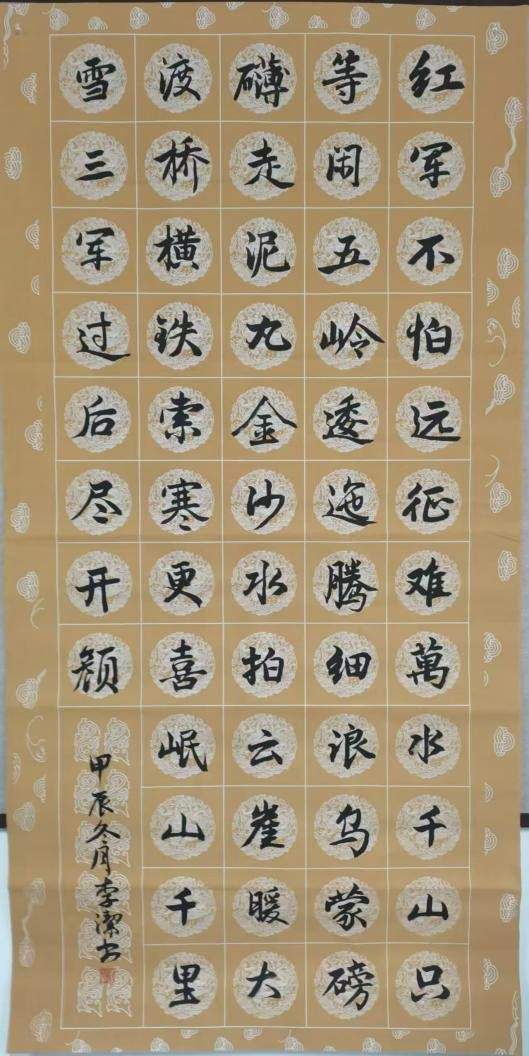 红军不怕远征难萬水千山只
等闲五岭逶迤腾细浪乌蒙磅
礴走泥丸金沙水拍云崖暖大
渡桥横铁索寒更喜岷山千里
雪三军过后尽开颜
甲辰冬月李潔书